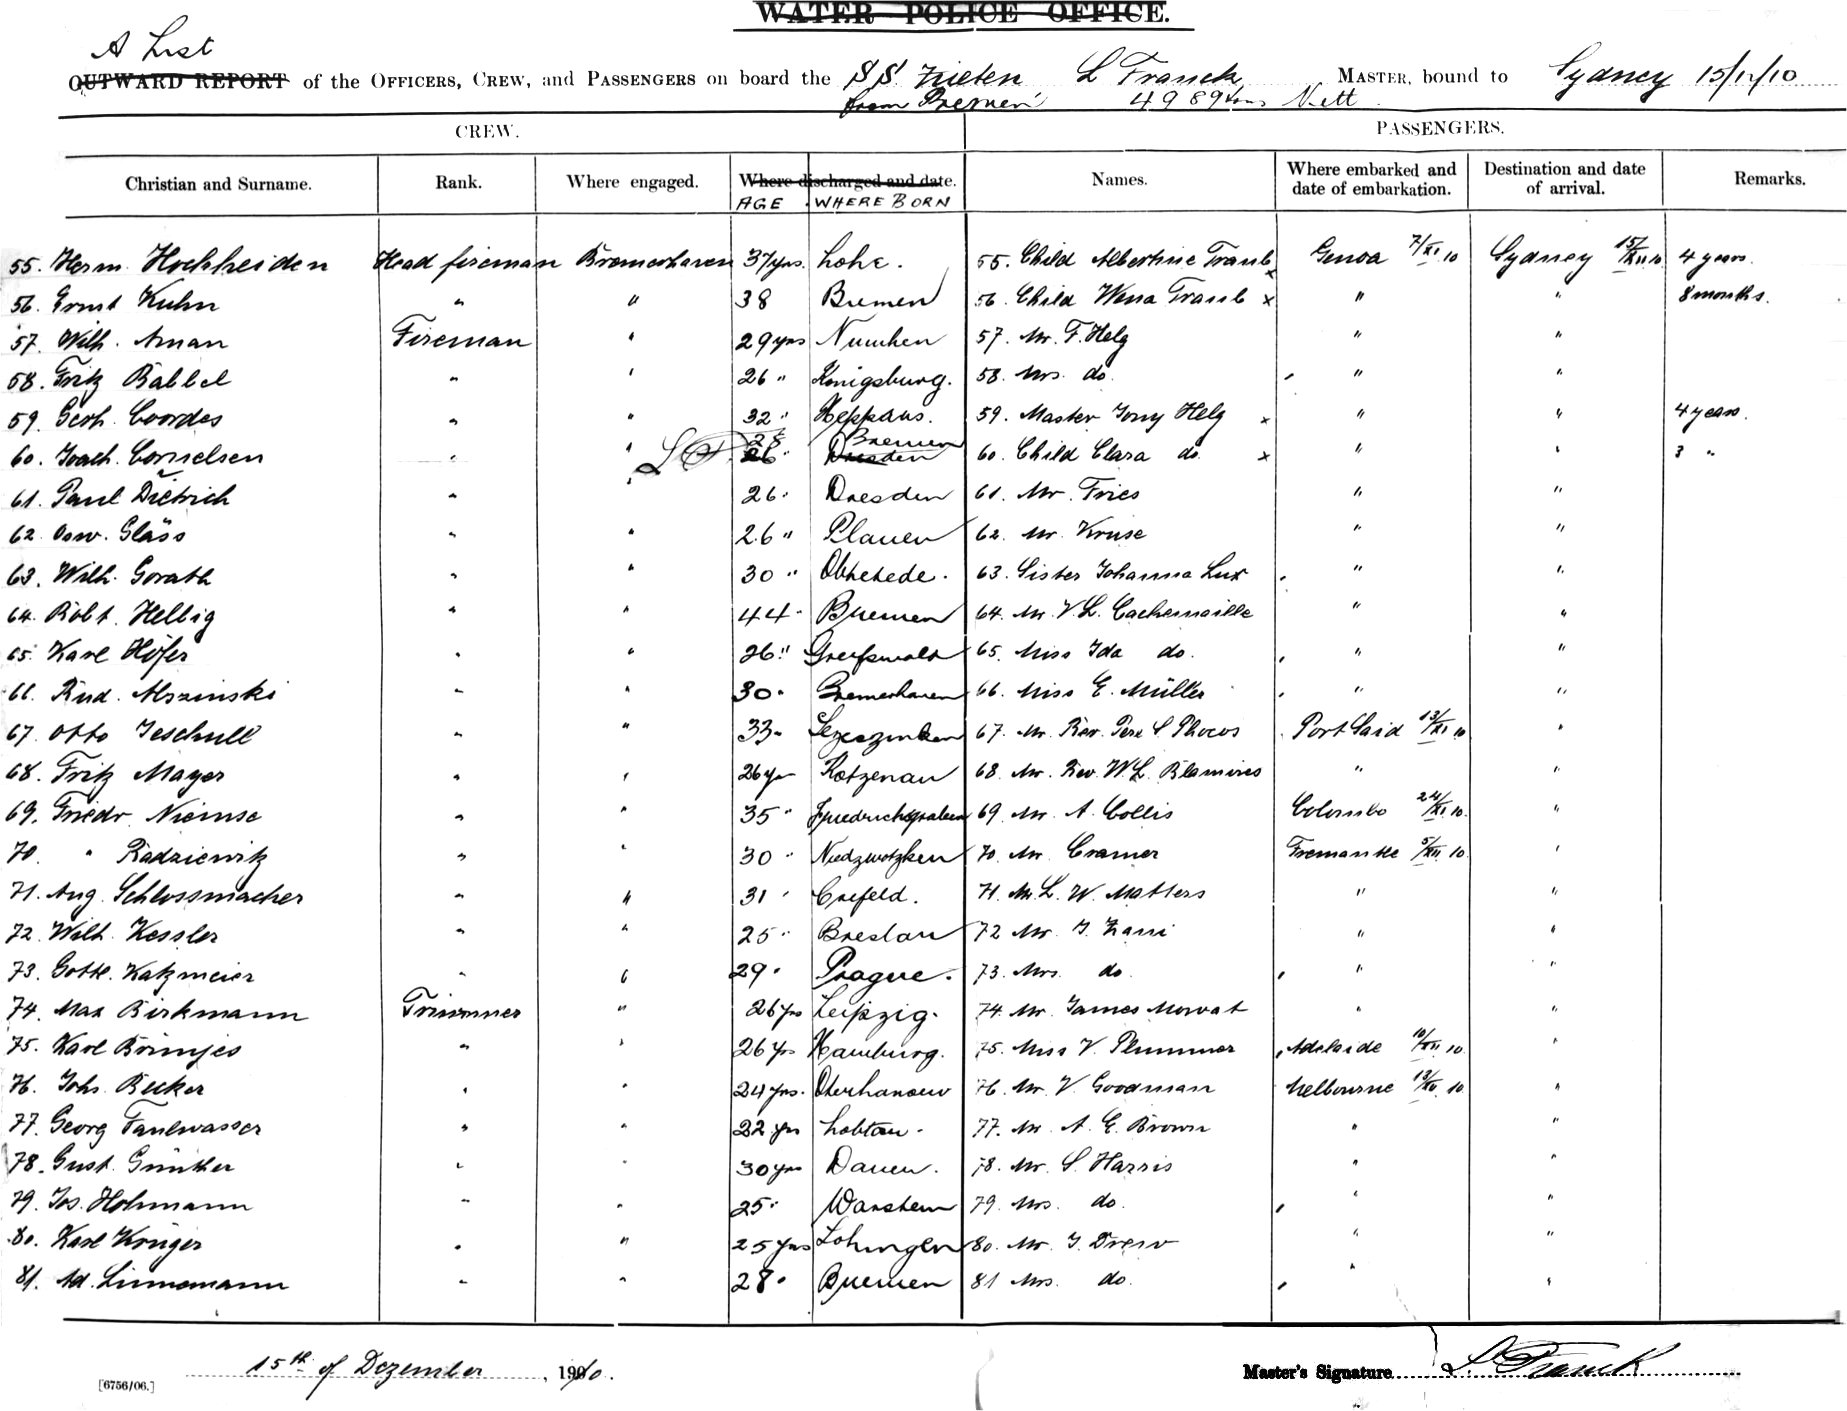 WATER POLICE OFFICE.
A List
OUTWARD REPORT of the OFFICERS, CREW, and PASSENGERS on board the SS Zieten L Franck MASTER, bound to Sydney 15/12/10
from Bremen 4989 tons Nett
CREW. PASSENGERS.
Christian and Surname. Rank. Where engaged. Where discharged and date. Names. Where embarked and date of embarkation. Destination and date of arrival. Remarks.
AGE WHERE BORN
55. Herm. Hochheiden Head fireman Bremerhaven 37 yrs. Lohe. 55. Child Albertine Traub x Genoa 7/XI 10 Sydney 15/XII 10 4 years.
56. Ernst Kuhn " " 38 Bremen 56. Child Wena Traub x " " 8 months.
57. Wilh. Aman Fireman " 29 yrs 57. Mr. F. Helg " "
58. Fritz Babbel " " 26 " Königsburg. 58. Mrs. do. " "
59. Gerh. Coordes " " 32 " Heppans. 59. Master Tony Helg x " " 4 years.
60. Joach. Cornelsen " " LF. 28 Bremen 26 " Dresden 60. Child Clara do. x " " 3 "
61. Paul Dietrich " " 26 " Dresden 61. Mr. Fries " "
62. Osw. Gläss " " 26 " Plauen 62. Mr. Kruse " "
63. Wilh. Gorath " " 30 " 63. Sister Johanna Lux " "
64. Robt. Hellbig " " 44 " Bremen 64. Mr. V. L. Cachemaille " "
65. Karl Höfer " " 26 " Greifswald 65. Miss Ida do. " "
66. Rud. Alszinski " " 30 " Bremerhaven 66. Miss E. Müller " "
67. Otto Jeschull " " 33 " 67. Mr. Rev. Pere S Phocos Port Said 13/XI 10 "
68. Fritz Mayer " " 26 yr Kotzenau 68. Mr. Rev. W. L. Blamires " "
69. Friedr. Niemse " " 35 " Friedrichsgraben 69. Mr. A. Collis Colombo 24/XI 10. "
70. " Radziewitz " " 30 " Niedzwetzken 70. Mr. Cramer Fremantle 5/XII 10 "
71. Aug. Schlossmacher " " 31 " Crefeld. 71. Mr. L. W. Matters " "
72. Wilh. Kessler " " 25 " Breslau 72 Mr. J. Zani " "
73. Gottl. Katzmeier " " 29 " Prague. 73. Mrs. do. " "
74. Max Birkmann Trimmer " 26 yrs Leipzig. 74. Mr. James Mowat " "
75. Karl Brinjes " " 26 yrs Hamburg. 75. Miss V. Plummer Adelaide 10/XII 10. "
76. Johs. Becker " " 24 yrs. 76. Mr. V. Goodman Melbourne 13/XII. 10. "
77. Georg Faulwasser " " 22 yrs Lobtau. 77. Mr. A. E. Brown " "
78. Gust. Günther " " 30 yrs Dauen. 78. Mr. S. Harris " "
79. Jos. Hohmann " " 25 " Warstein 79. Mrs. do. " "
80. Karl Krüger " " 25 yrs 80. Mr. J. Drew " "
81. Ad. Linnemann " " 28 " Bremen 81 Mrs. do. " "
15th of Dezember, 1910.
[6756/06.] Master's Signature L. Franck